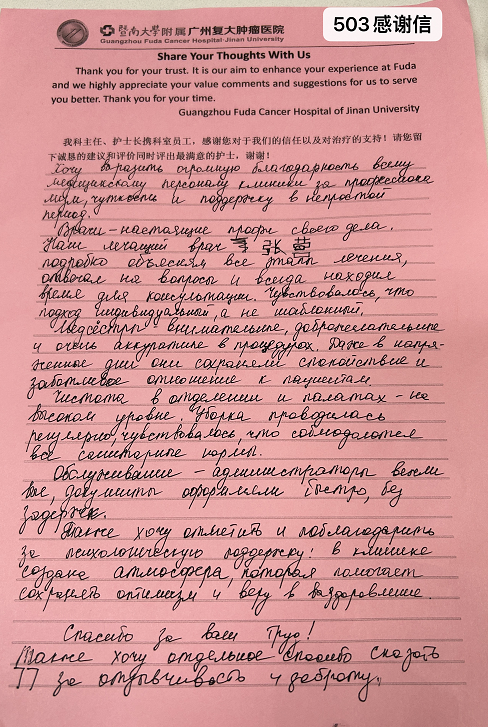 503感谢信
暨南大学附属广州复大肿瘤医院
Guangzhou Fuda Cancer Hospital·Jinan University
Share Your Thoughts With Us
Thank you for your trust. It is our aim to enhance your experience at Fuda
and we highly appreciate your value comments and suggestions for us to serve
you better. Thank you for your time.
Guangzhou Fuda Cancer Hospital of Jinan University
我科主任、护士长携科室员工，感谢您对于我们的信任以及对治疗的支持！请您留
下诚恳的建议和评价同时评出最满意的护士，谢谢！
Хочу выразить огромную благодарность всему
медицинскому персоналу клиники за профессиона
лизм, чуткость и поддержку в непростой
период.
Врачи – настоящие профи своего дела.
Наш лечащий врач 张
подробно объяснял все этапы лечения,
отвечал на вопросы и всегда находил
время для консультации. Чувствовалось, что
подход индивидуальный, а не шаблонный.
Медсёстры внимательные, доброжелательные
и очень аккуратные в процедурах. Даже в напря-
женные дни они сохраняли спокойствие и
заботливое отношение к пациентам.
Чистота в отделении и палатах – на
высоком уровне. Уборка проводилась
регулярно, чувствовалось, что соблюдаются
все санитарные нормы.
Обслуживание – администраторы вежли
вые, документы оформляли быстро, без
задержек.
Также хочу отметить и поблагодарить
за психологическую поддержку: в клинике
создана атмосфера, которая помогает
сохранять оптимизм и веру в выздоровление.
Спасибо за ваш труд!
Также хочу отдельное спасибо сказать
за отзывчивость и доброту.